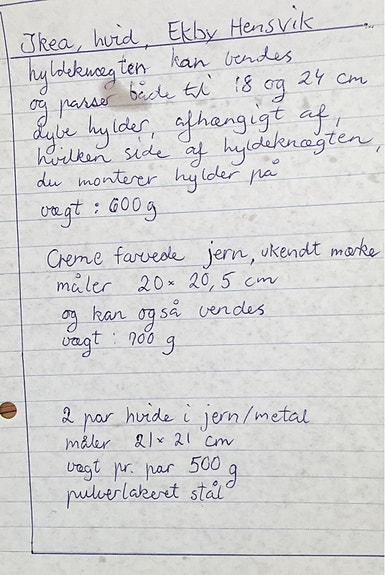 Ikea, hvid, Ekby Hensvik
hyldeknægten kan vendes
og passer både til 18 og 24 cm
dybe hylder, afhængigt af,
hvilken side af hyldeknægten,
du monterer hylder på
vægt : 600 g
Creme farvede jern, ukendt mærke
måler 20 × 20,5 cm
og kan også vendes
vægt : 700 g
2 par hvide i jern/metal
måler 21 × 21 cm
vægt pr. par 500 g
pulverlakeret stål